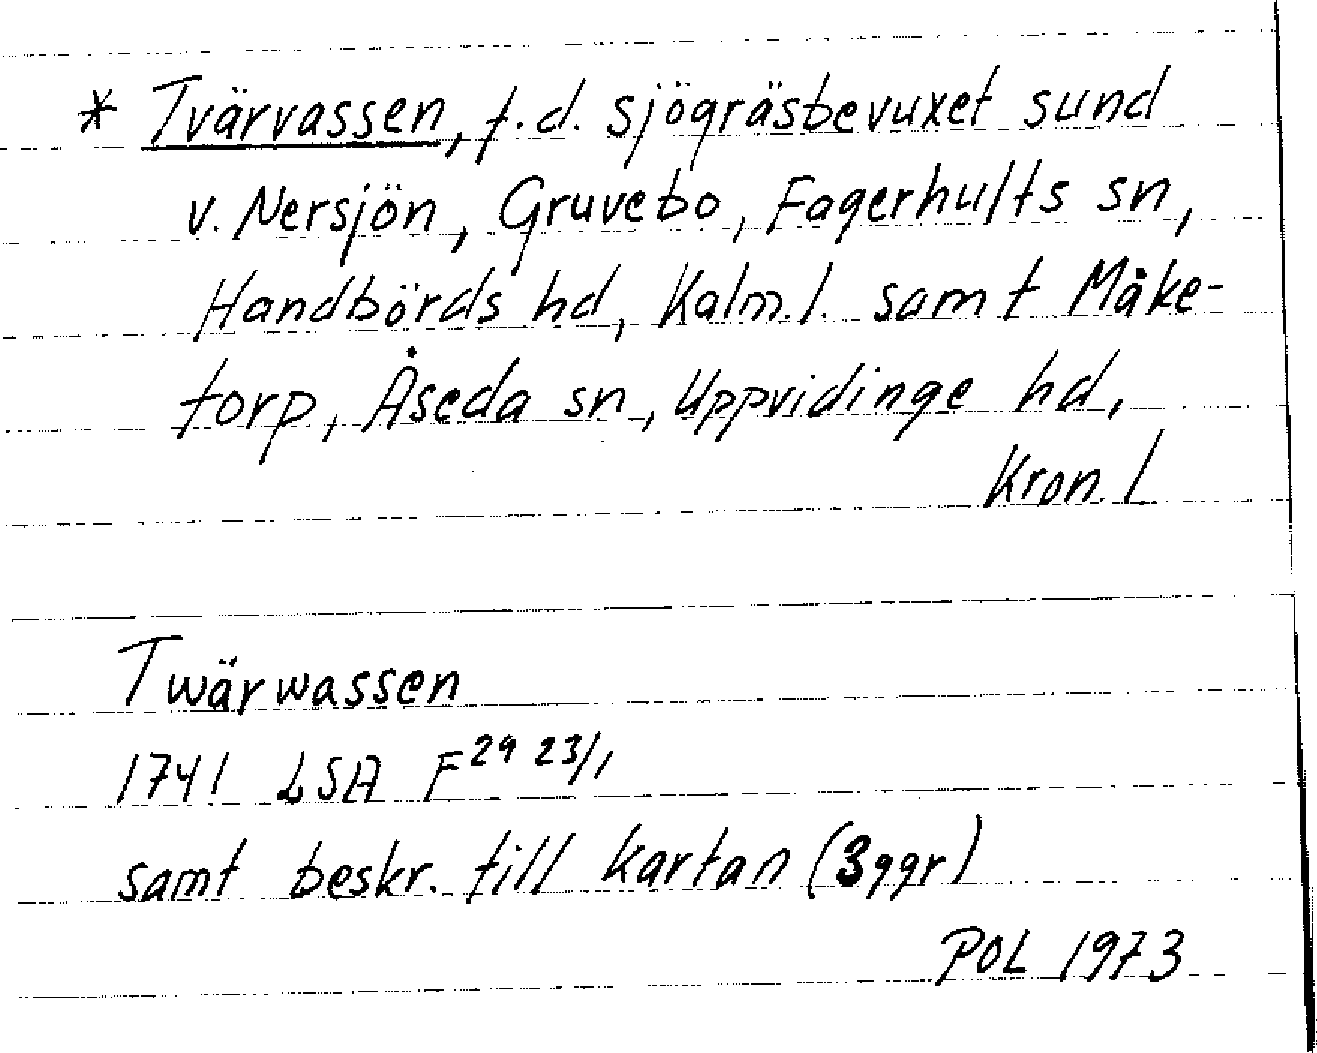 * Tvärvassen, f.d. sjögräsbevuxet sund
v. Nersjön, Gruvebo, Fagerhults sn,
Handbörds hd, Kalm.l. samt Måke-
torp, Åseda sn, Uppvidinge hd,
Kron. l
Twärwassen
1741 LSA F²⁹ ²³/₁
samt beskr. till kartan (3ggr)
POL 1973